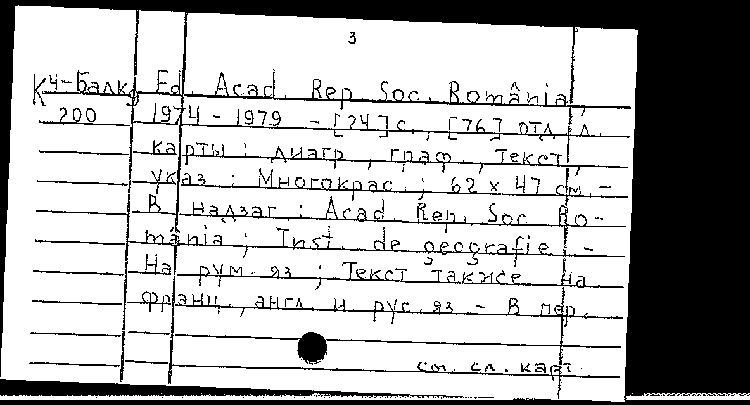 3
К4-Балк Ed. Acad. Rep. Soc. România,
9
200 1974 - 1979 - [24] с., [76] отд. л.
карты : диагр., граф., текст,
указ : Многокрас. ; 62 x 47 см. -
В надзаг : Acad. Rep. Soc. Ro-
mânia ; Inst. de geografie. -
На рум. яз ; Текст также на
франц., англ. и рус. яз - В пер.
см. сл. карт.